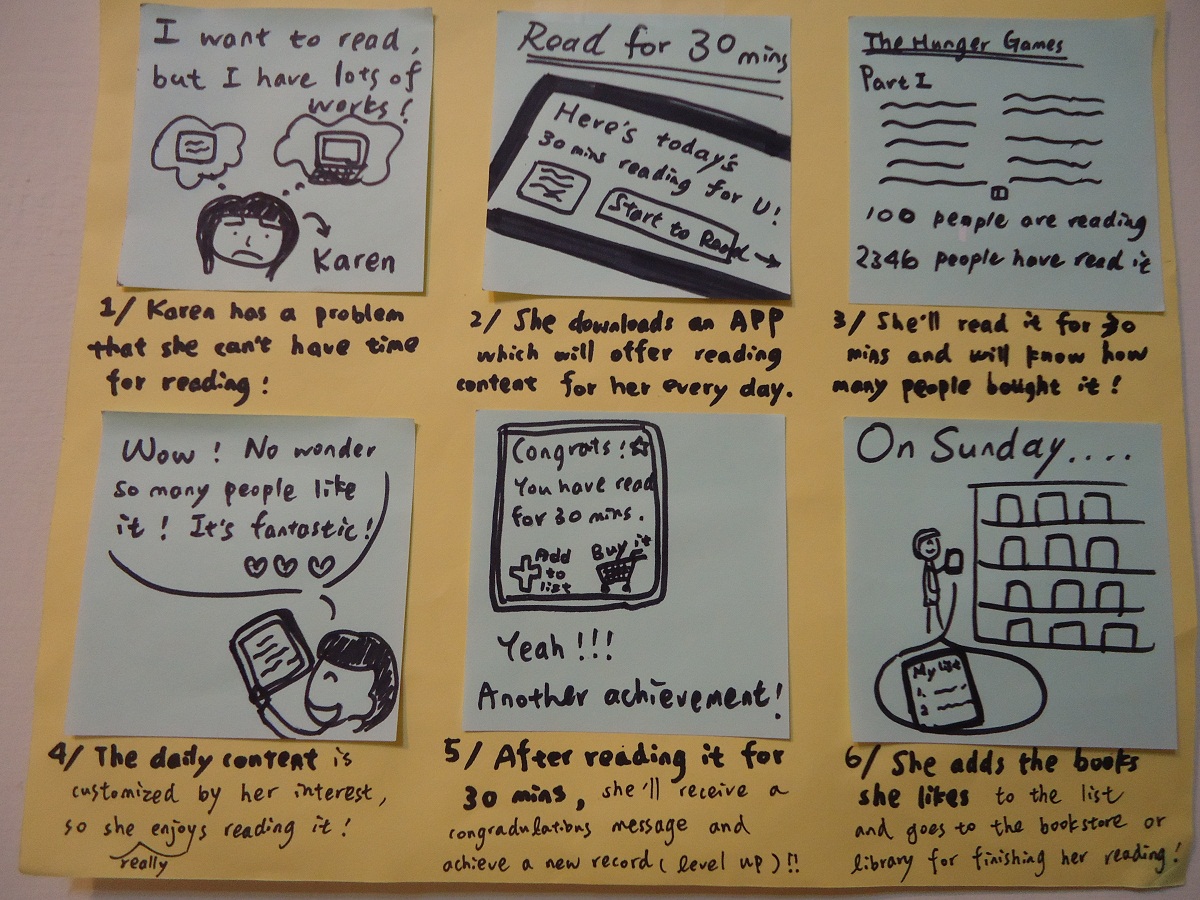 I want to read,
but I have lots of
works!
Karen
1/ Karen has a problem
that she can't have time
for reading!
Read for 30 mins
Here's today's
30 mins reading for U!
Start to Read
2/ She downloads an APP
which will offer reading
content for her every day.
The Hunger Games
Part I
100 people are reading
2346 people have read it
3/ She'll read it for 30
mins and will know how
many people bought it!
Wow! No wonder
so many people like
it! It's fantastic!
4/ The daily content is
customized by her interest,
so she enjoys reading it!
really
Congrats!
You have read
for 30 mins.
Add
to
list
Buy it
Yeah!!!
Another achievement!
5/ After reading it for
30 mins, she'll receive a
congradulations message and
achieve a new record (level up)!!
On Sunday....
My list
1.
2
6/ She adds the books
she likes to the list
and goes to the bookstore or
library for finishing her reading!